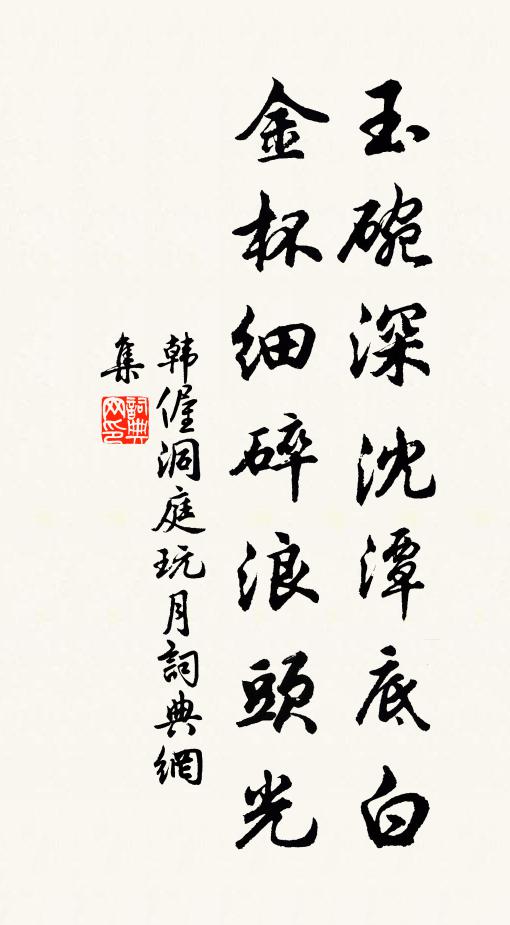 玉碗深沈潭底白
金杯細碎浪頭光
韩偓洞庭玩月詞典網
集
詞典
网印